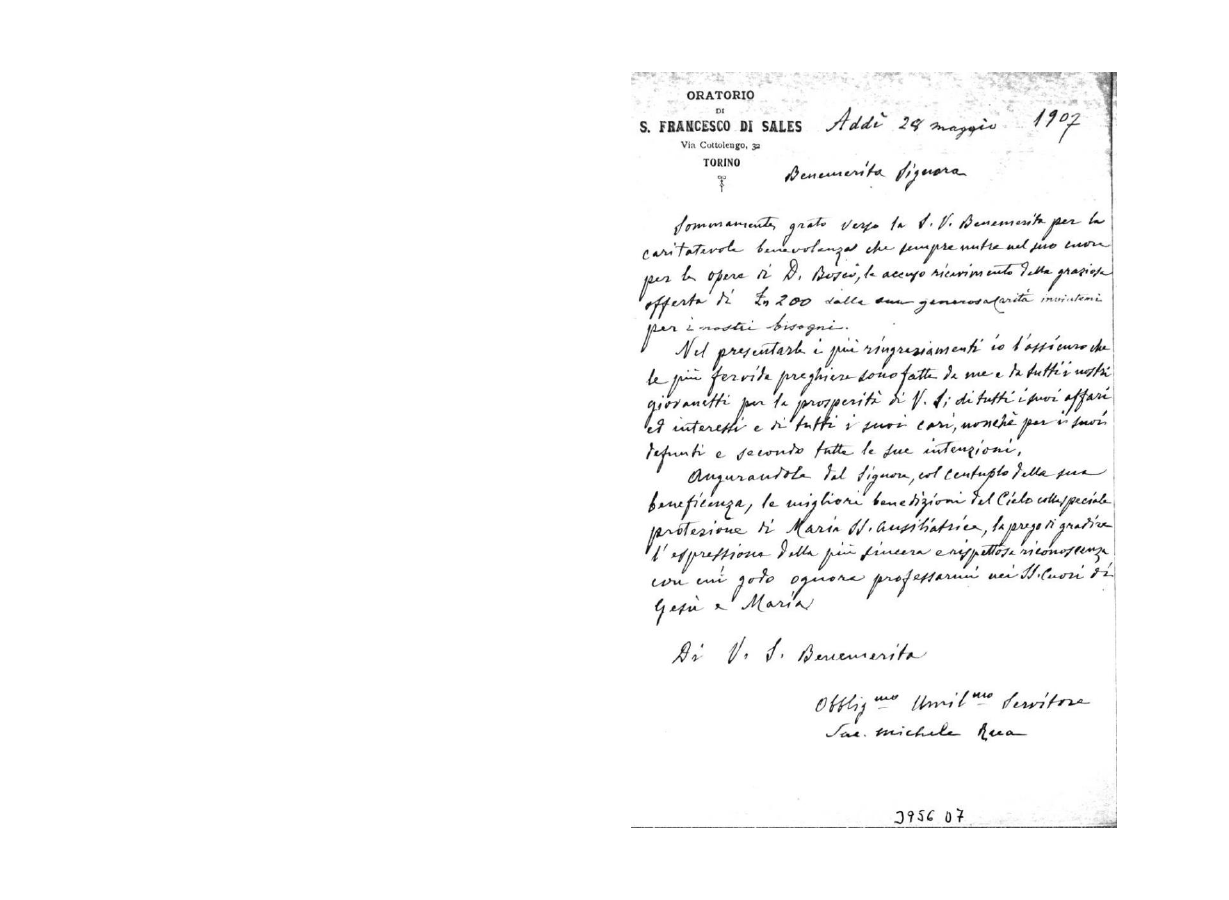 ORATORIO
DI
S. FRANCESCO DI SALES
Via Cottolengo, 32
TORINO
Addì 28 maggio 1907
Benemerita Signora
Sommamente grato verso la S. V. Benemerita per la
caritatevole benevolenza che sempre nutre nel suo cuore
per le opere di D. Bosco, le accuso ricevimento della graziosa
offerta di 200 dalla sua generosa carità inviatami
per i nostri bisogni.
Nel presentarle i più ringraziamenti io l'assicuro che
le più fervide preghiere sono fatte da me e da tutti i nostri
giovanetti per la prosperità di V. S; di tutti i suoi affari
ed interessi e di tutti i suoi cari, nonchè per i suoi
defunti e secondo tutte le sue intenzioni.
Augurandole dal Signore, col centuplo della sua
beneficenza, le migliori benedizioni del Cielo colla speciale
protezione di Maria SS. Ausiliatrice, la prego di gradire
l'espressione della più sincera e rispettosa riconoscenza
con cui godo ognora professarmi nei SS. Cuori di
Gesù e Maria
Di V. S. Benemerita
Obblig.mo Umil.mo Servitore
Sac. Michele Rua
3956 07